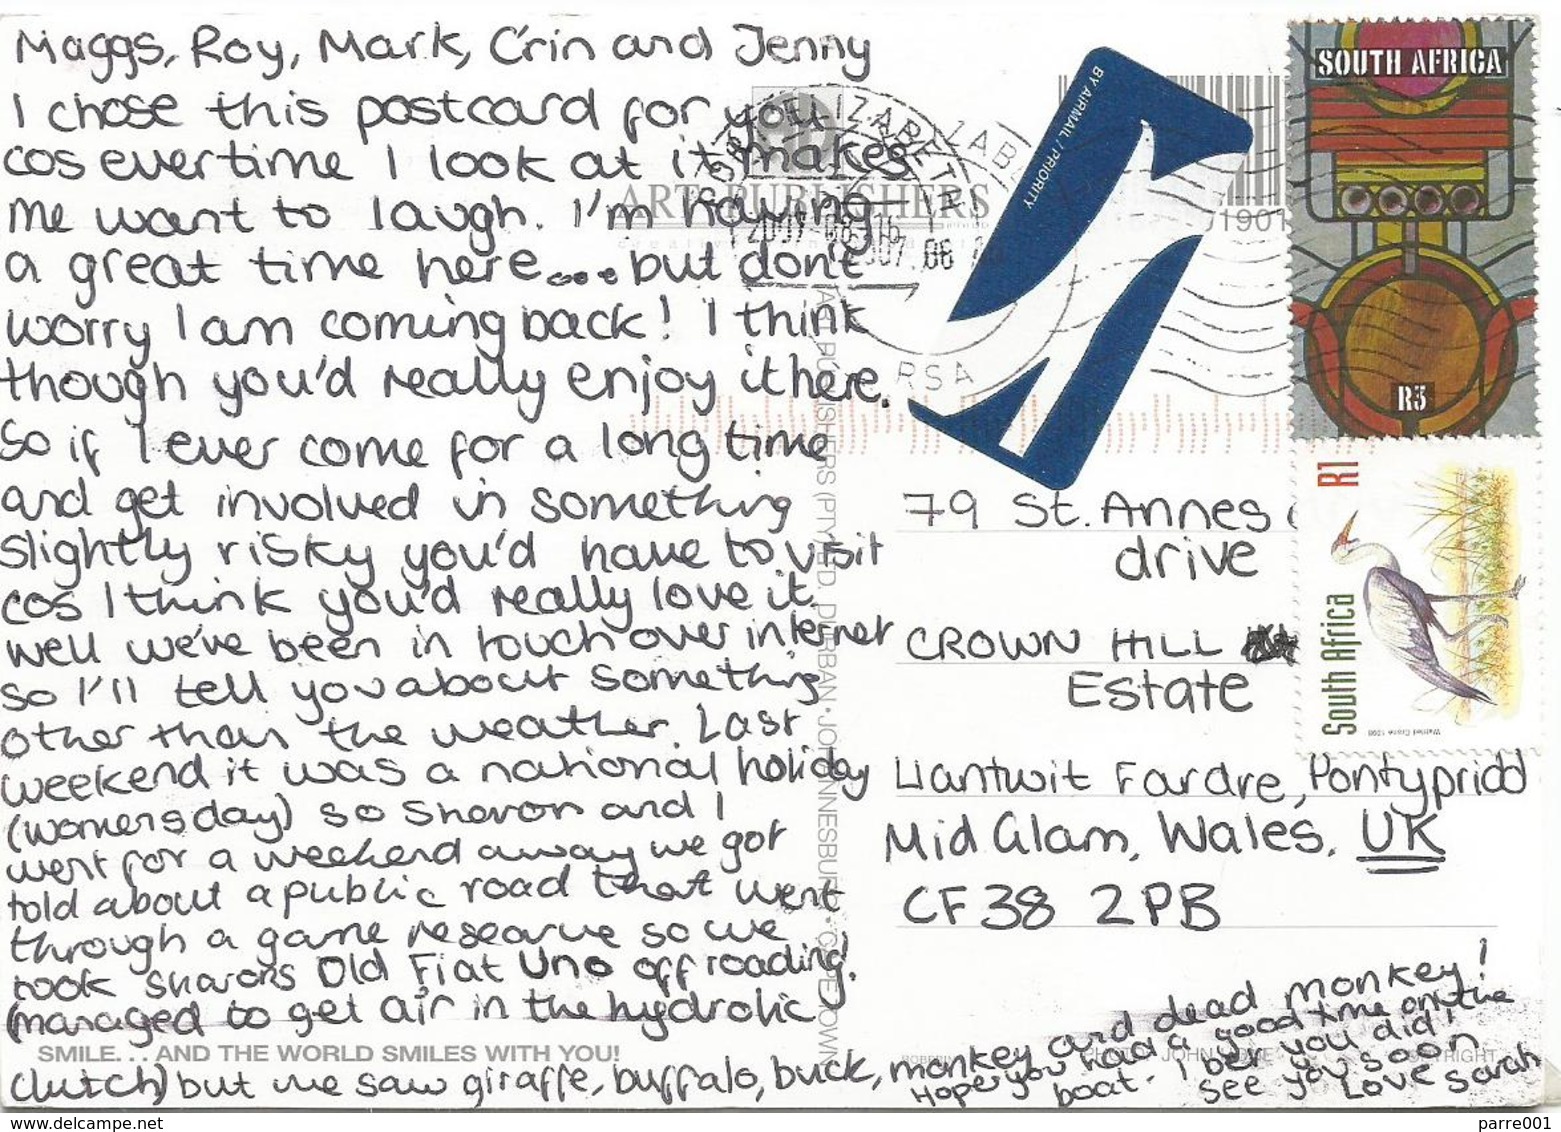 Maggs, Roy, Mark, C'rin and Jenny
I chose this postcard for you
cos evertime I look at it makes
me want to laugh. I'm having
a great time here.... but don't
worry I am coming back! I think
though you'd really enjoy it here.
So if I ever come for a long time
and get involved in something
slightly risky you'd have to visit
cos I think you'd really love it.
well we've been in touch over internet
so I'll tell you about something
other than the weather. Last
weekend it was a national holiday
(womensday) so Sharon and I
went for a weekend away we got
told about a public road that went
through a game researve so we
took sharons Old Fiat Uno off roading!
(managed to get air in the hydrolic
clutch) but we saw giraffe, buffalo, buck, monkey and dead monkey!
Hope you had a good time on the
boat. I bet you did!
See you soon
Love Sarah
SMILE... AND THE WORLD SMILES WITH YOU!
ART PUBLISHERS
ART PUBLISHERS (PTY) LTD, DURBAN • JOHANNESBURG • CAPE TOWN
PORT ELIZABETH
RSA
BY AIRMAIL / PRIORITY
SOUTH AFRICA
R3
R1
South Africa
Wattled Crane 1998
79 St. Annes
drive
CROWN HILL
Estate
Llantwit Fardre, Pontypridd
Mid Glam, Wales, UK
CF38 2PB
COPYRIGHT
delcampe.net
parre001